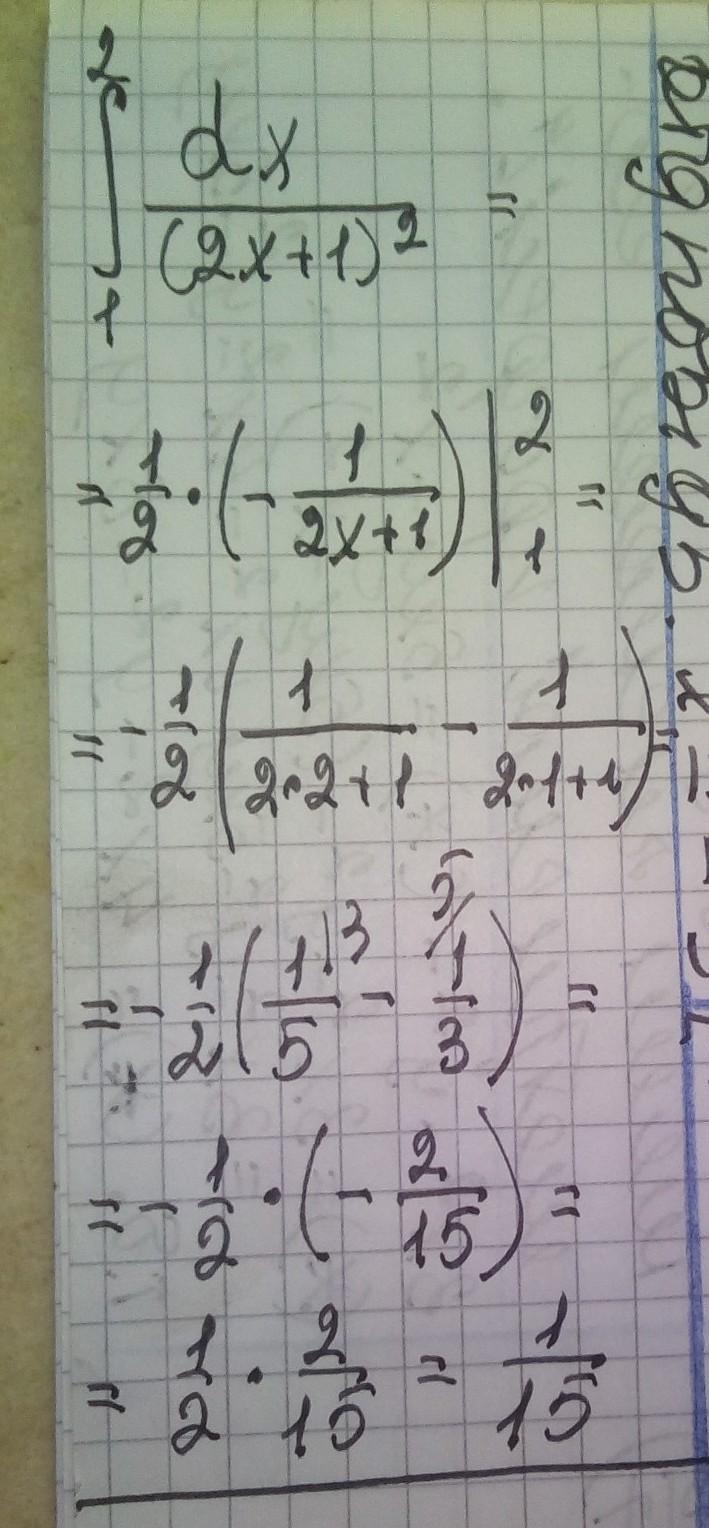 ∫₁² dx/(2x+1)² =
= 1/2 · (- 1/(2x+1)) |₁² =
= - 1/2 (1/(2·2+1) - 1/(2·1+1)) =
= - 1/2 (1/5 \3 - 5/ 1/3) =
= - 1/2 · (- 2/15) =
= 1/2 · 2/15 = 1/15